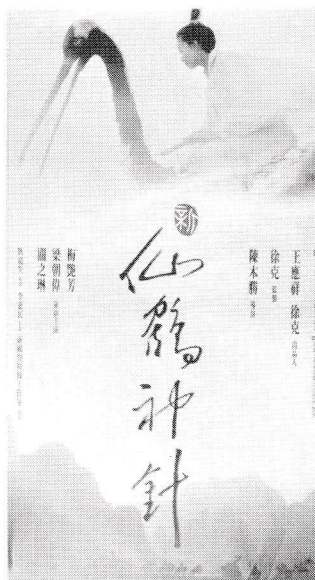 新
仙鶴神針
王應祥 徐克 出品人
徐克 監製
陳木勝 導演
梅艷芳
梁朝偉
關之琳
領銜主演